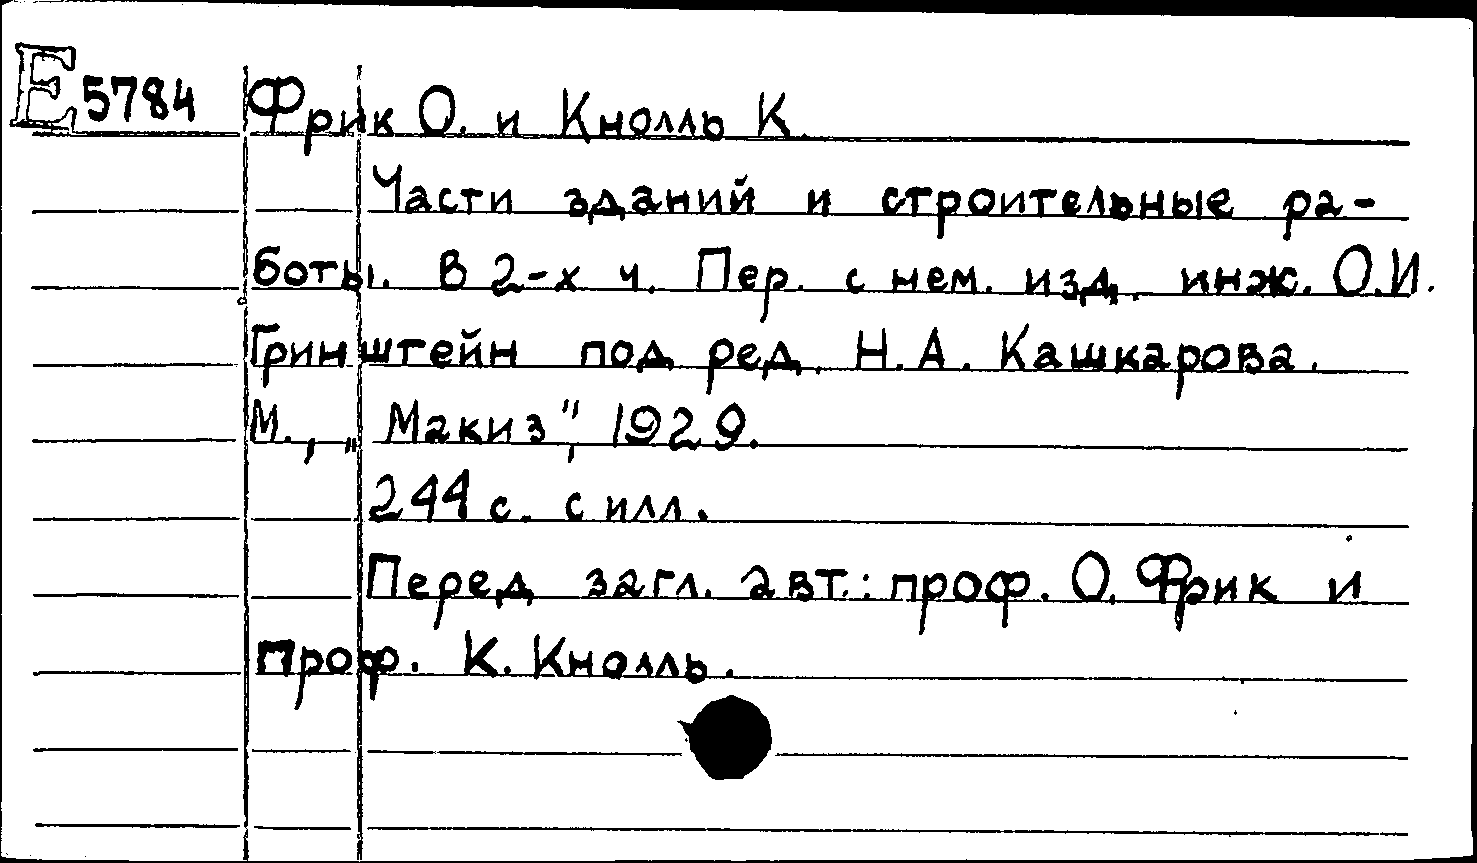 E 5784 Фрик О. и Кнолль К.
Части зданий и строительные ра-
боты. В 2-х ч. Пер. с нем. изд. инж. О.И.
Гринштейн под ред. Н.А. Кашкарова.
М., „Макиз", 1929.
244 с. с илл.
Перед загл. авт.: проф. О. Фрик и
проф. К. Кнолль.